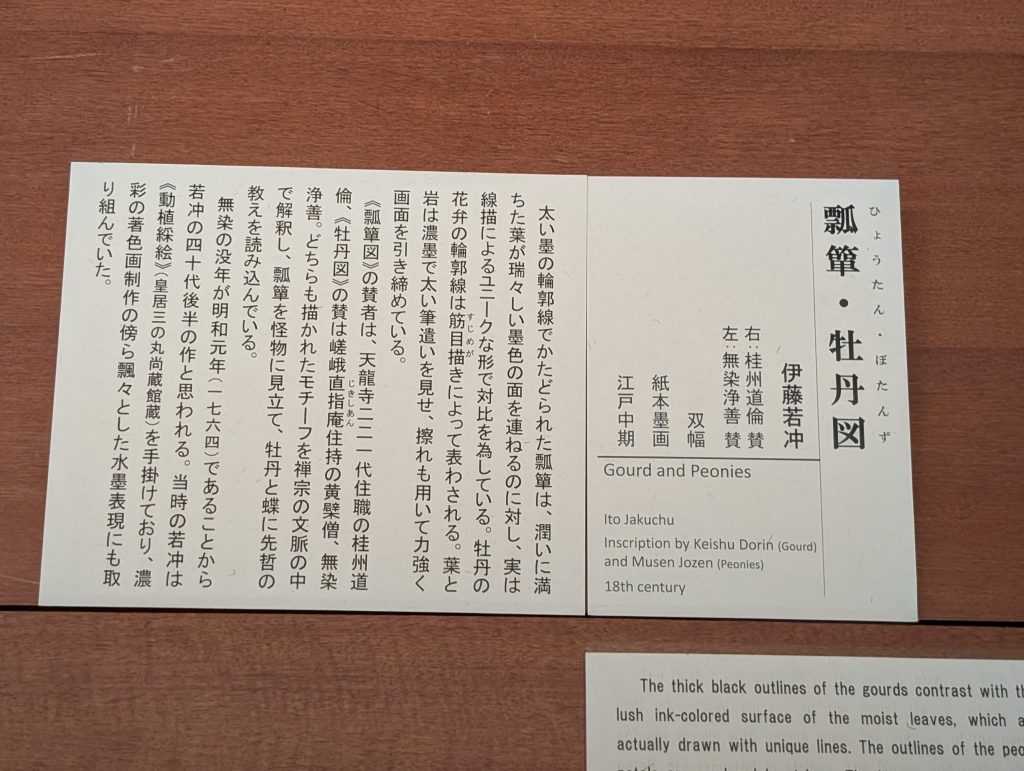 ひょうたん・ぼたんず
瓢箪・牡丹図
伊藤若冲
右:桂州道倫 賛
左:無染浄善 賛
双幅
紙本墨画
江戸中期
Gourd and Peonies
Ito Jakuchu
Inscription by Keishu Dorin (Gourd)
and Musen Jozen (Peonies)
18th century
太い墨の輪郭線でかたどられた瓢箪は、潤いに満
ちた葉が瑞々しい墨色の面を連ねるのに対し、実は
線描によるユニークな形で対比を為している。牡丹の
花弁の輪郭線は筋目描きによって表わされる。葉と
すじめが
岩は濃墨で太い筆遣いを見せ、擦れも用いて力強く
画面を引き締めている。
《瓢箪図》の賛者は、天龍寺二二一代住職の桂州道
倫、《牡丹図》の賛は嵯峨直指庵住持の黄檗僧、無染
じきしあん
浄善。どちらも描かれたモチーフを禅宗の文脈の中
で解釈し、瓢箪を怪物に見立て、牡丹と蝶に先哲の
教えを読み込んでいる。
無染の没年が明和元年(一七六四)であることから
若冲の四十代後半の作と思われる。当時の若冲は
《動植綵絵》(皇居三の丸尚蔵館蔵)を手掛けており、濃
彩の著色画制作の傍ら飄々とした水墨表現にも取
り組んでいた。
The thick black outlines of the gourds contrast with
lush ink-colored surface of the moist leaves, which
actually drawn with unique lines. The outlines of the